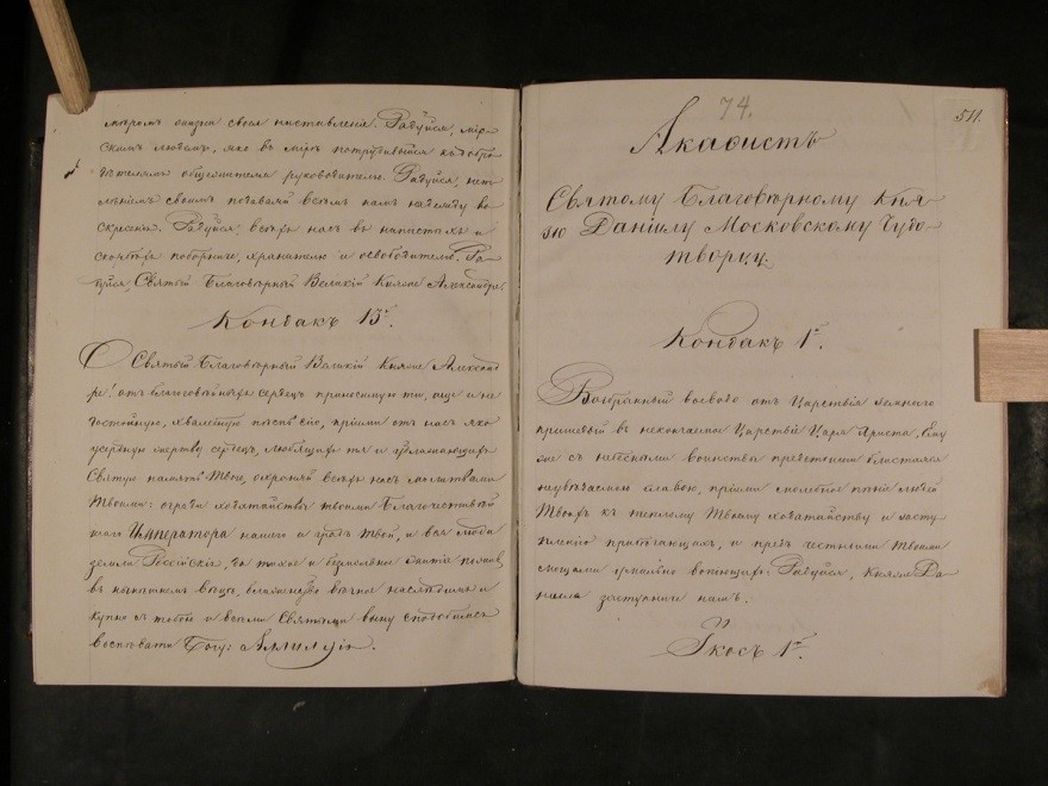 мѣромъ жизни своея наставленіе. Радуйся, мiр-
скимъ людемъ, яко въ мiрѣ потрудившійся къ добро
дѣтелямъ руководителю. Радуйся, нет-
лѣніемъ своимъ подаваяй всѣмъ намъ надежду во
скресенія. Радуйся, всѣхъ насъ въ напастѣхъ и
скорбѣхъ поборниче, хранителю и освободителю. Ра-
дуйся, Святый Благовѣрный Великій Княже Александре.
Кондакъ 13й.
О Святый Благовѣрный Великій Княже Александ
ре! отъ благоговѣйныхъ сердецъ приносимую ти, аще и не
достойную, хвалебную пѣснь сію, пріими отъ насъ яко
усердную жертву сердецъ, любящихъ тя и ублажающихъ
Святую память Твою, охраняй всѣхъ насъ молитвами
Твоими: огради ходатайствы твоими Благочестивѣй
шаго Императора нашего и градъ твой, и вся люди
земли Россійскія, да тихое и безмолвное житіе
въ нынѣшнемъ вѣцѣ, вѣчное наслѣдимъ и
купно съ тобою и всѣми Святыми выну сподобимся
воспѣвати Богу: Аллилуіа.
74.
511.
Акафистъ
Святому Благовѣрному Кня-
зю Даніилу Московскому Чудо-
творцу.
Кондакъ 1й.
Возбранный воеводо отъ Царствія земнаго
пришедый въ нескончаемое Царствіе Царя Христа, Ему
же съ небесными воинствы предстоиши блистаяся
неувядаемою славою, пріими молебное пѣніе людей
Твоихъ къ теплому Твоему ходатайству и засту
пленію прибѣгающихъ, и предъ честными Твоими
мощами умильно вопіющихъ: Радуйся, Княже Да-
ніиле заступниче нашъ.
Икосъ 1й.